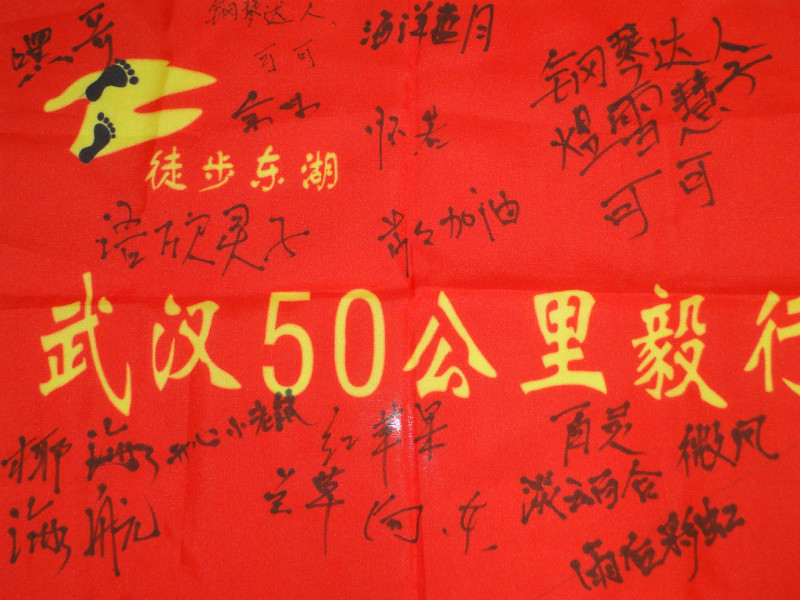 嘿哥
钢琴达人
可可
海洋蓝月
钢琴达人
煜雪慧子
可可
怀若
徒步东湖
语欣灵子
加油
武汉50公里毅行
柳海
开心小老鼠
红苹果
百灵
微风
海航
兰草
向女
淡云百合
雨后彩虹